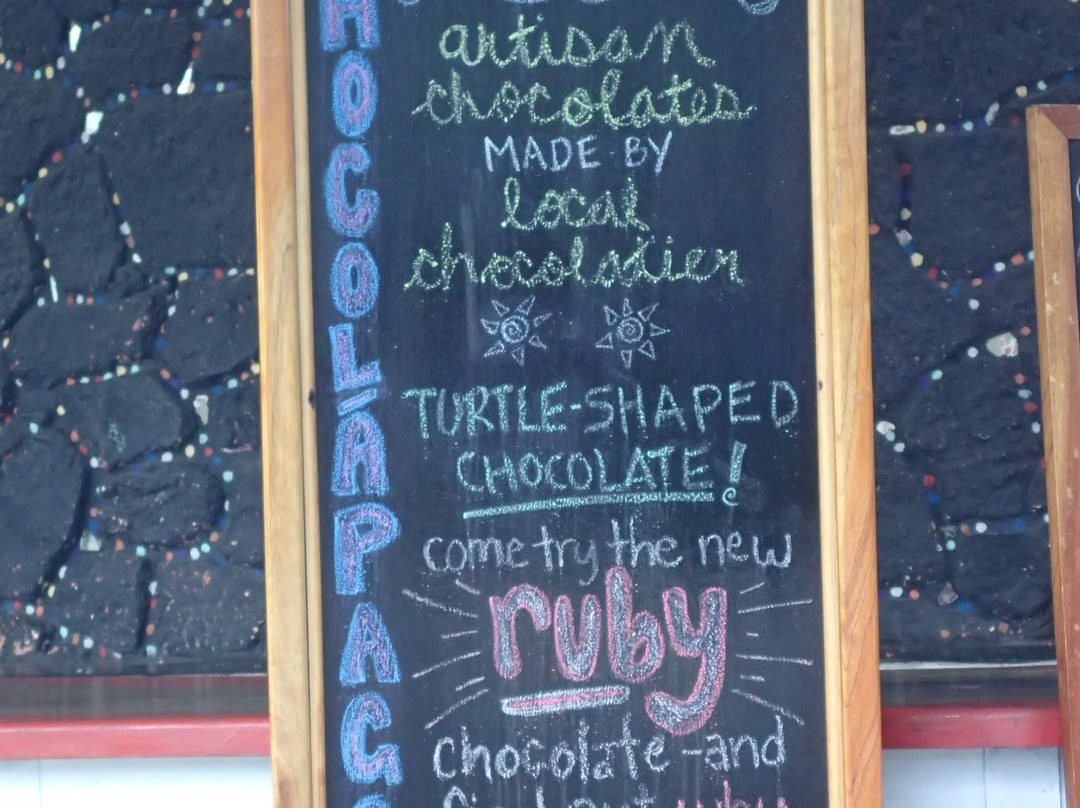 HOCOLÁPAG
artisan
chocolates
MADE BY
local
chocolatier
TURTLE-SHAPED
CHOCOLATE!
come try the new
ruby
chocolate-and